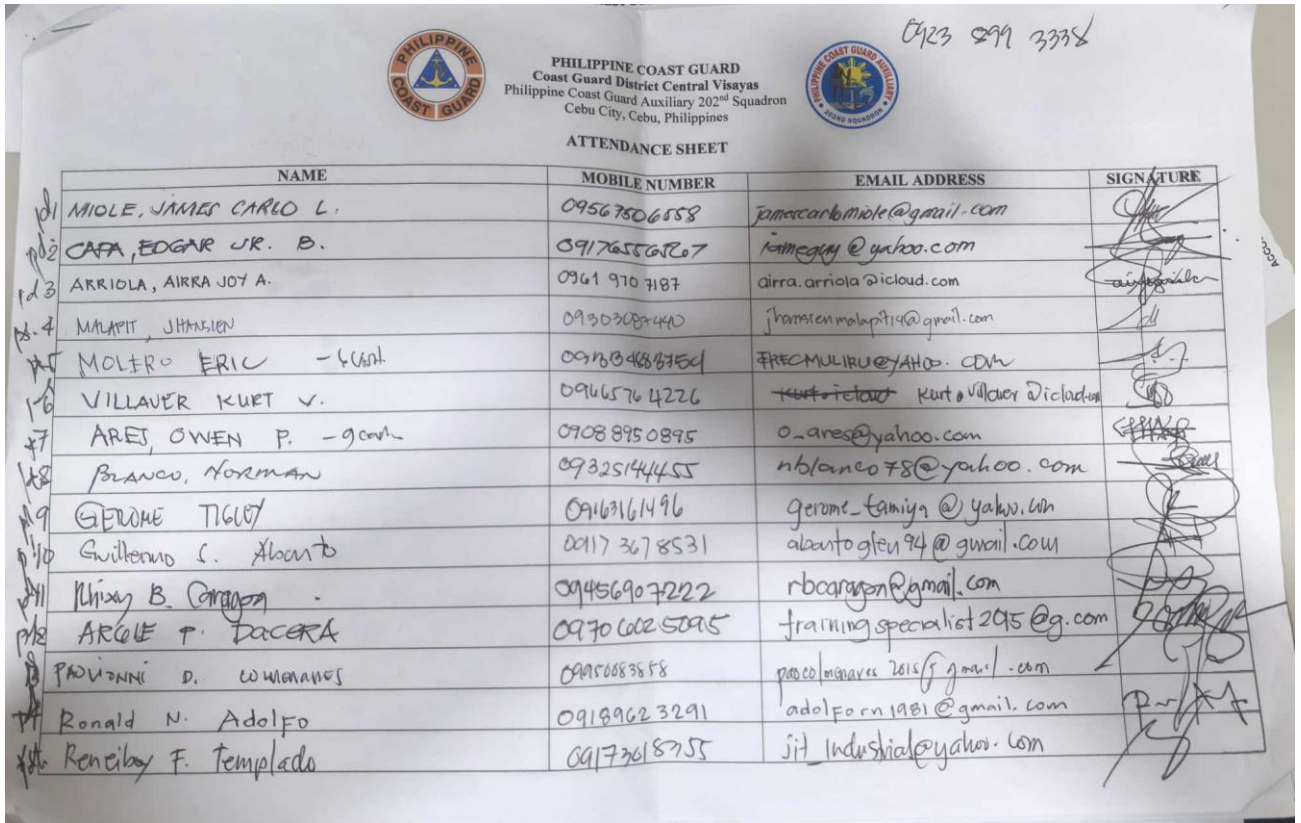 0923 899 3338
PHILIPPINE COAST GUARD
PHILIPPINE COAST GUARD
Coast Guard District Central Visayas
Philippine Coast Guard Auxiliary 202nd Squadron
Cebu City, Cebu, Philippines
PHILIPPINE COAST GUARD AUXILIARY
202ND SQUADRON
ATTENDANCE SHEET
NAME MOBILE NUMBER EMAIL ADDRESS SIGNATURE
pd1 MIOLE, JAMES CARLO L. 09567506558 jamescarlomiole@gmail.com
pd2 CAPA, EDGAR JR. B. @yahoo.com
pd3 ARRIOLA, AIRRA JOY A. 0961 970 7187 airra.arriola@icloud.com
4 MALAPIT, JHANSIEN 09303087440 jhansienmalapit14@gmail.com
5 MOLERO ERIC
6 VILLAVER KURT V. 09465764226 kurt.villaver@iclod.com
7 ARES, OWEN P. - gcash 09088950895 o_ares@yahoo.com
8 BLANCO, NORMAN 09325144455 nblanco78@yahoo.com
9 GEROME TIGUOY 09163161496 gerome_tamiya@yahoo.com
10 Guillermo S. Abanto 00917 367 8531 abantoglen94@gmail.com
11 Rhixy B. Caragon 09456907222 rbcaragon@gmail.com
12 ARGIE P. DACERA 09706025095 trainingspecialist2015@g.com
D. 09950083858
Ronald N. Adolfo 09189623291 adolforn1981@gmail.com
Reneiboy F. Templado 09173618755 jit_industrial@yahoo.com